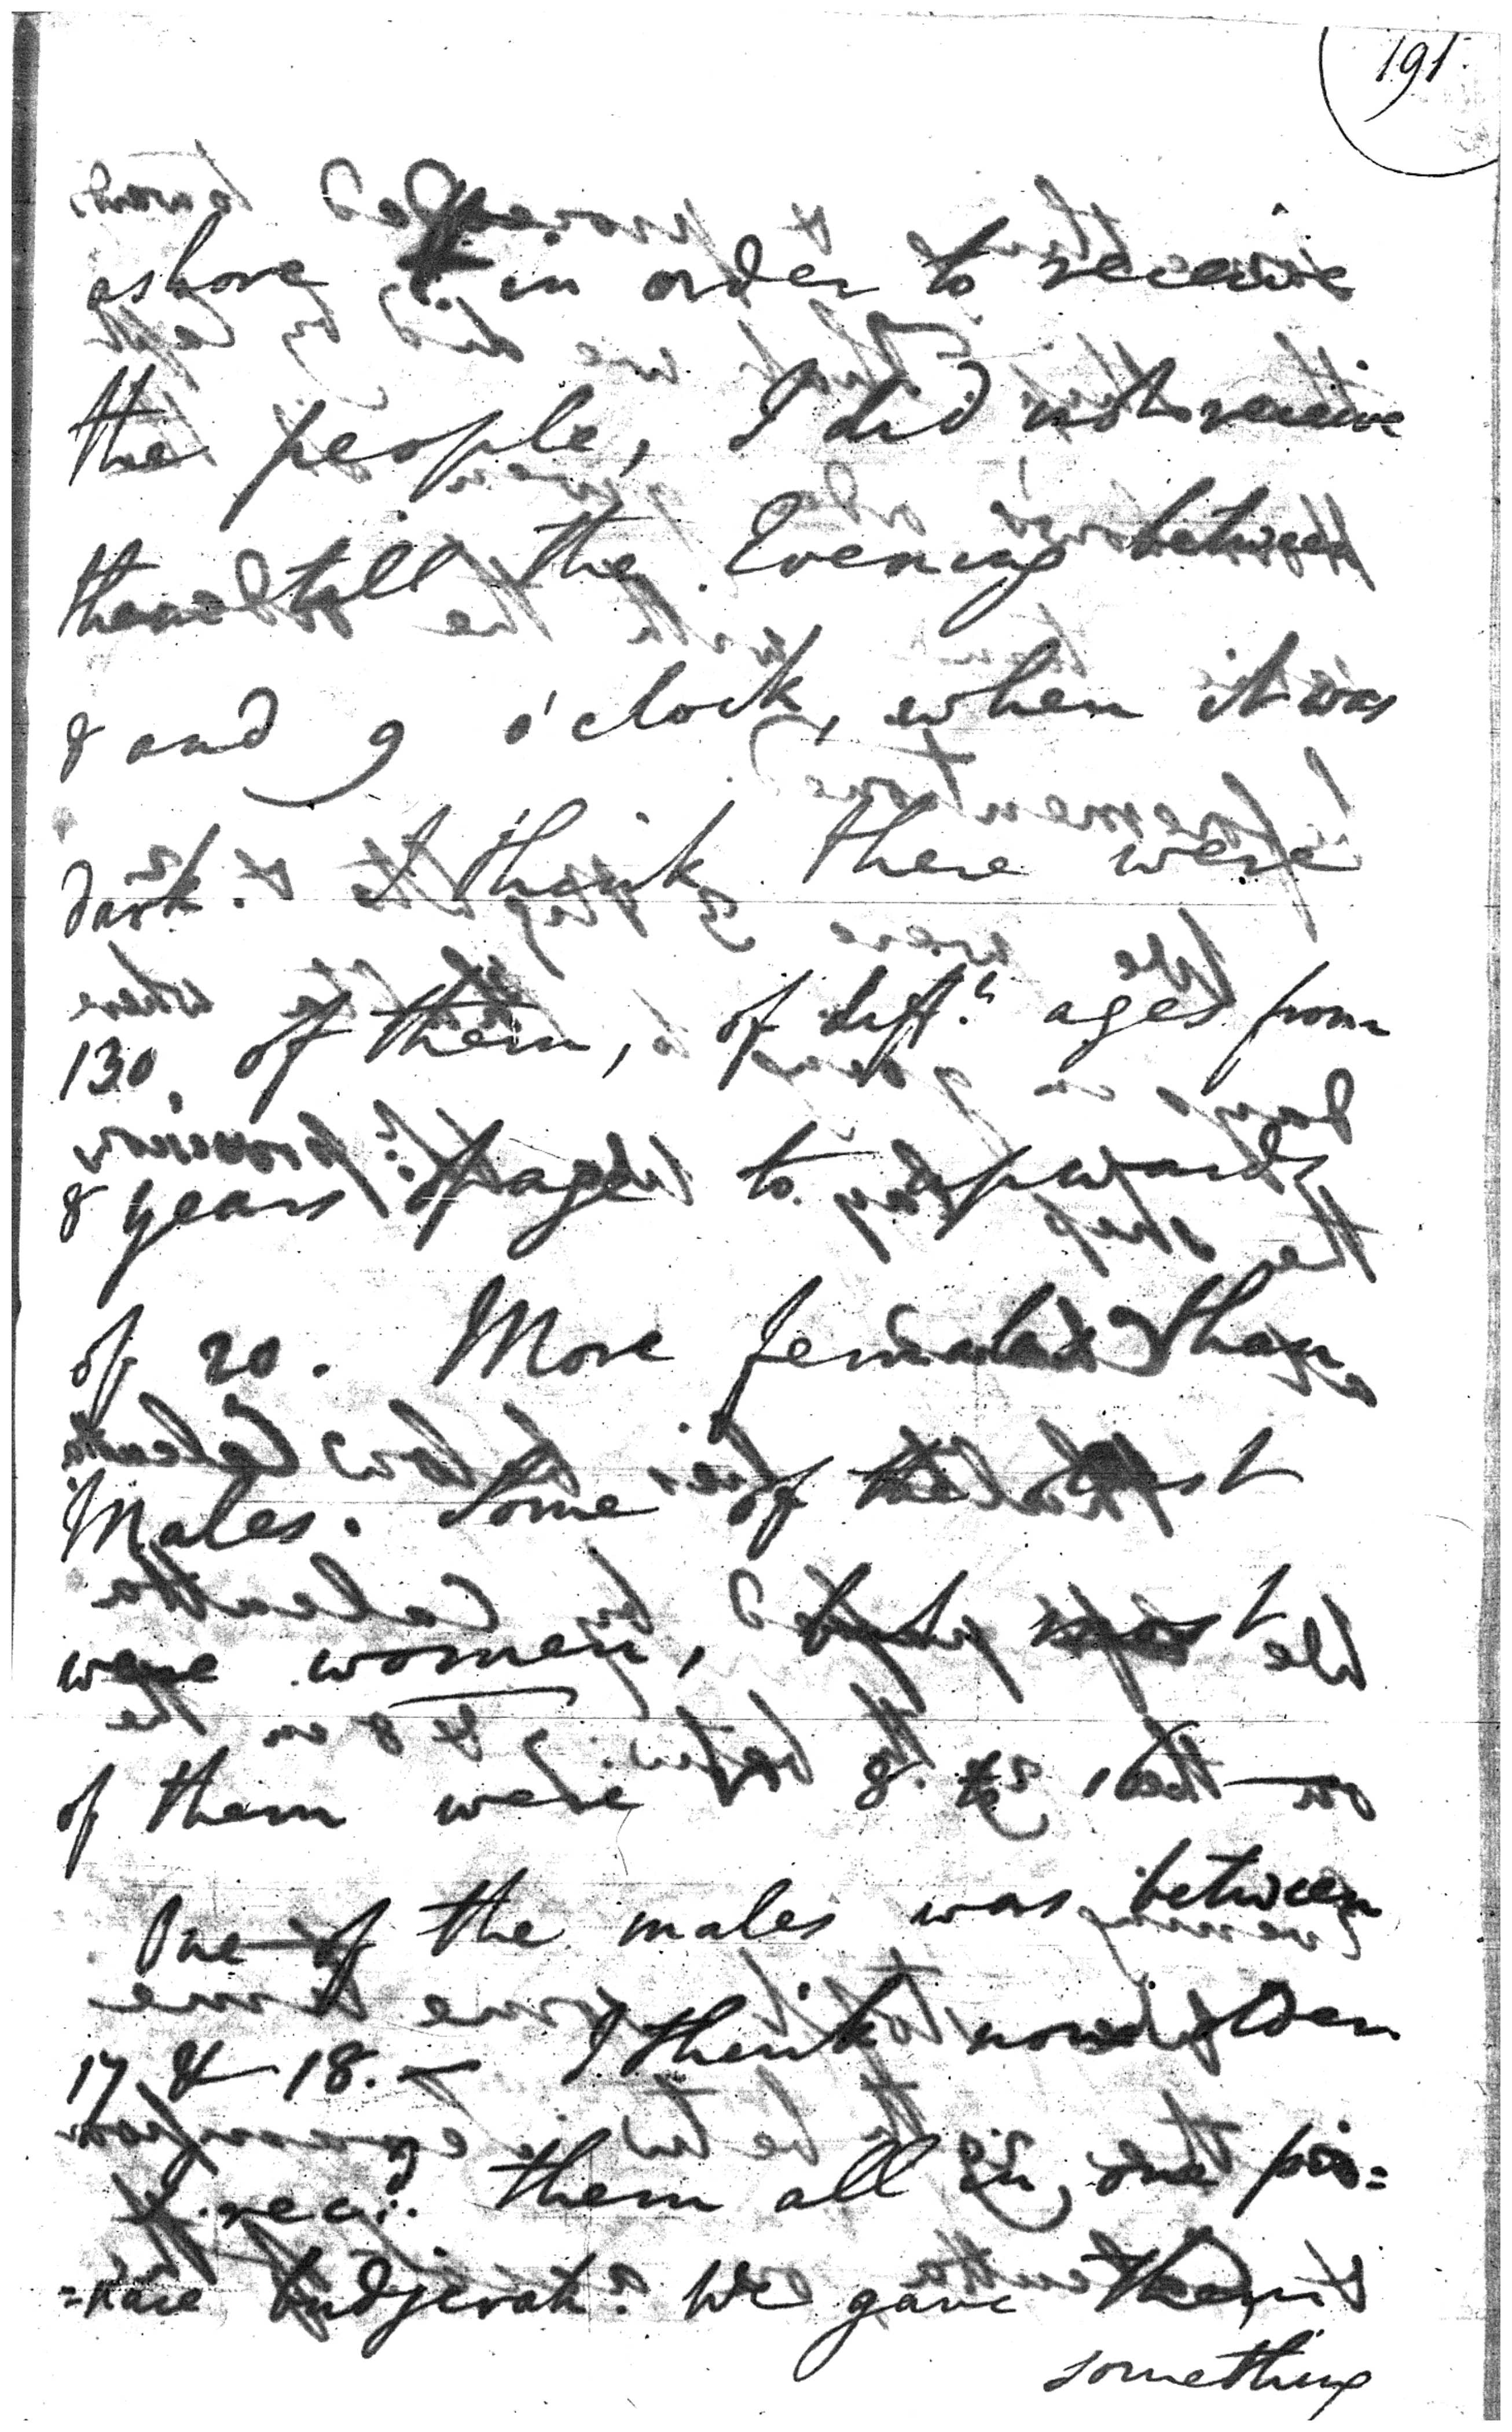 191
ashore in order to receive
the people, I did not receive
them till the Evening between
8 and 9 o'clock, when it was
dark. I think there were
130 of them, of diff.t ages from
8 years of age to upwards
of 20. More females than
Males. Some of the
were women, most
of them were
One of the males was between
17 & 18. — I think none older
I rec.d them all in one pin=
=nace Budjerah. We gave them
something